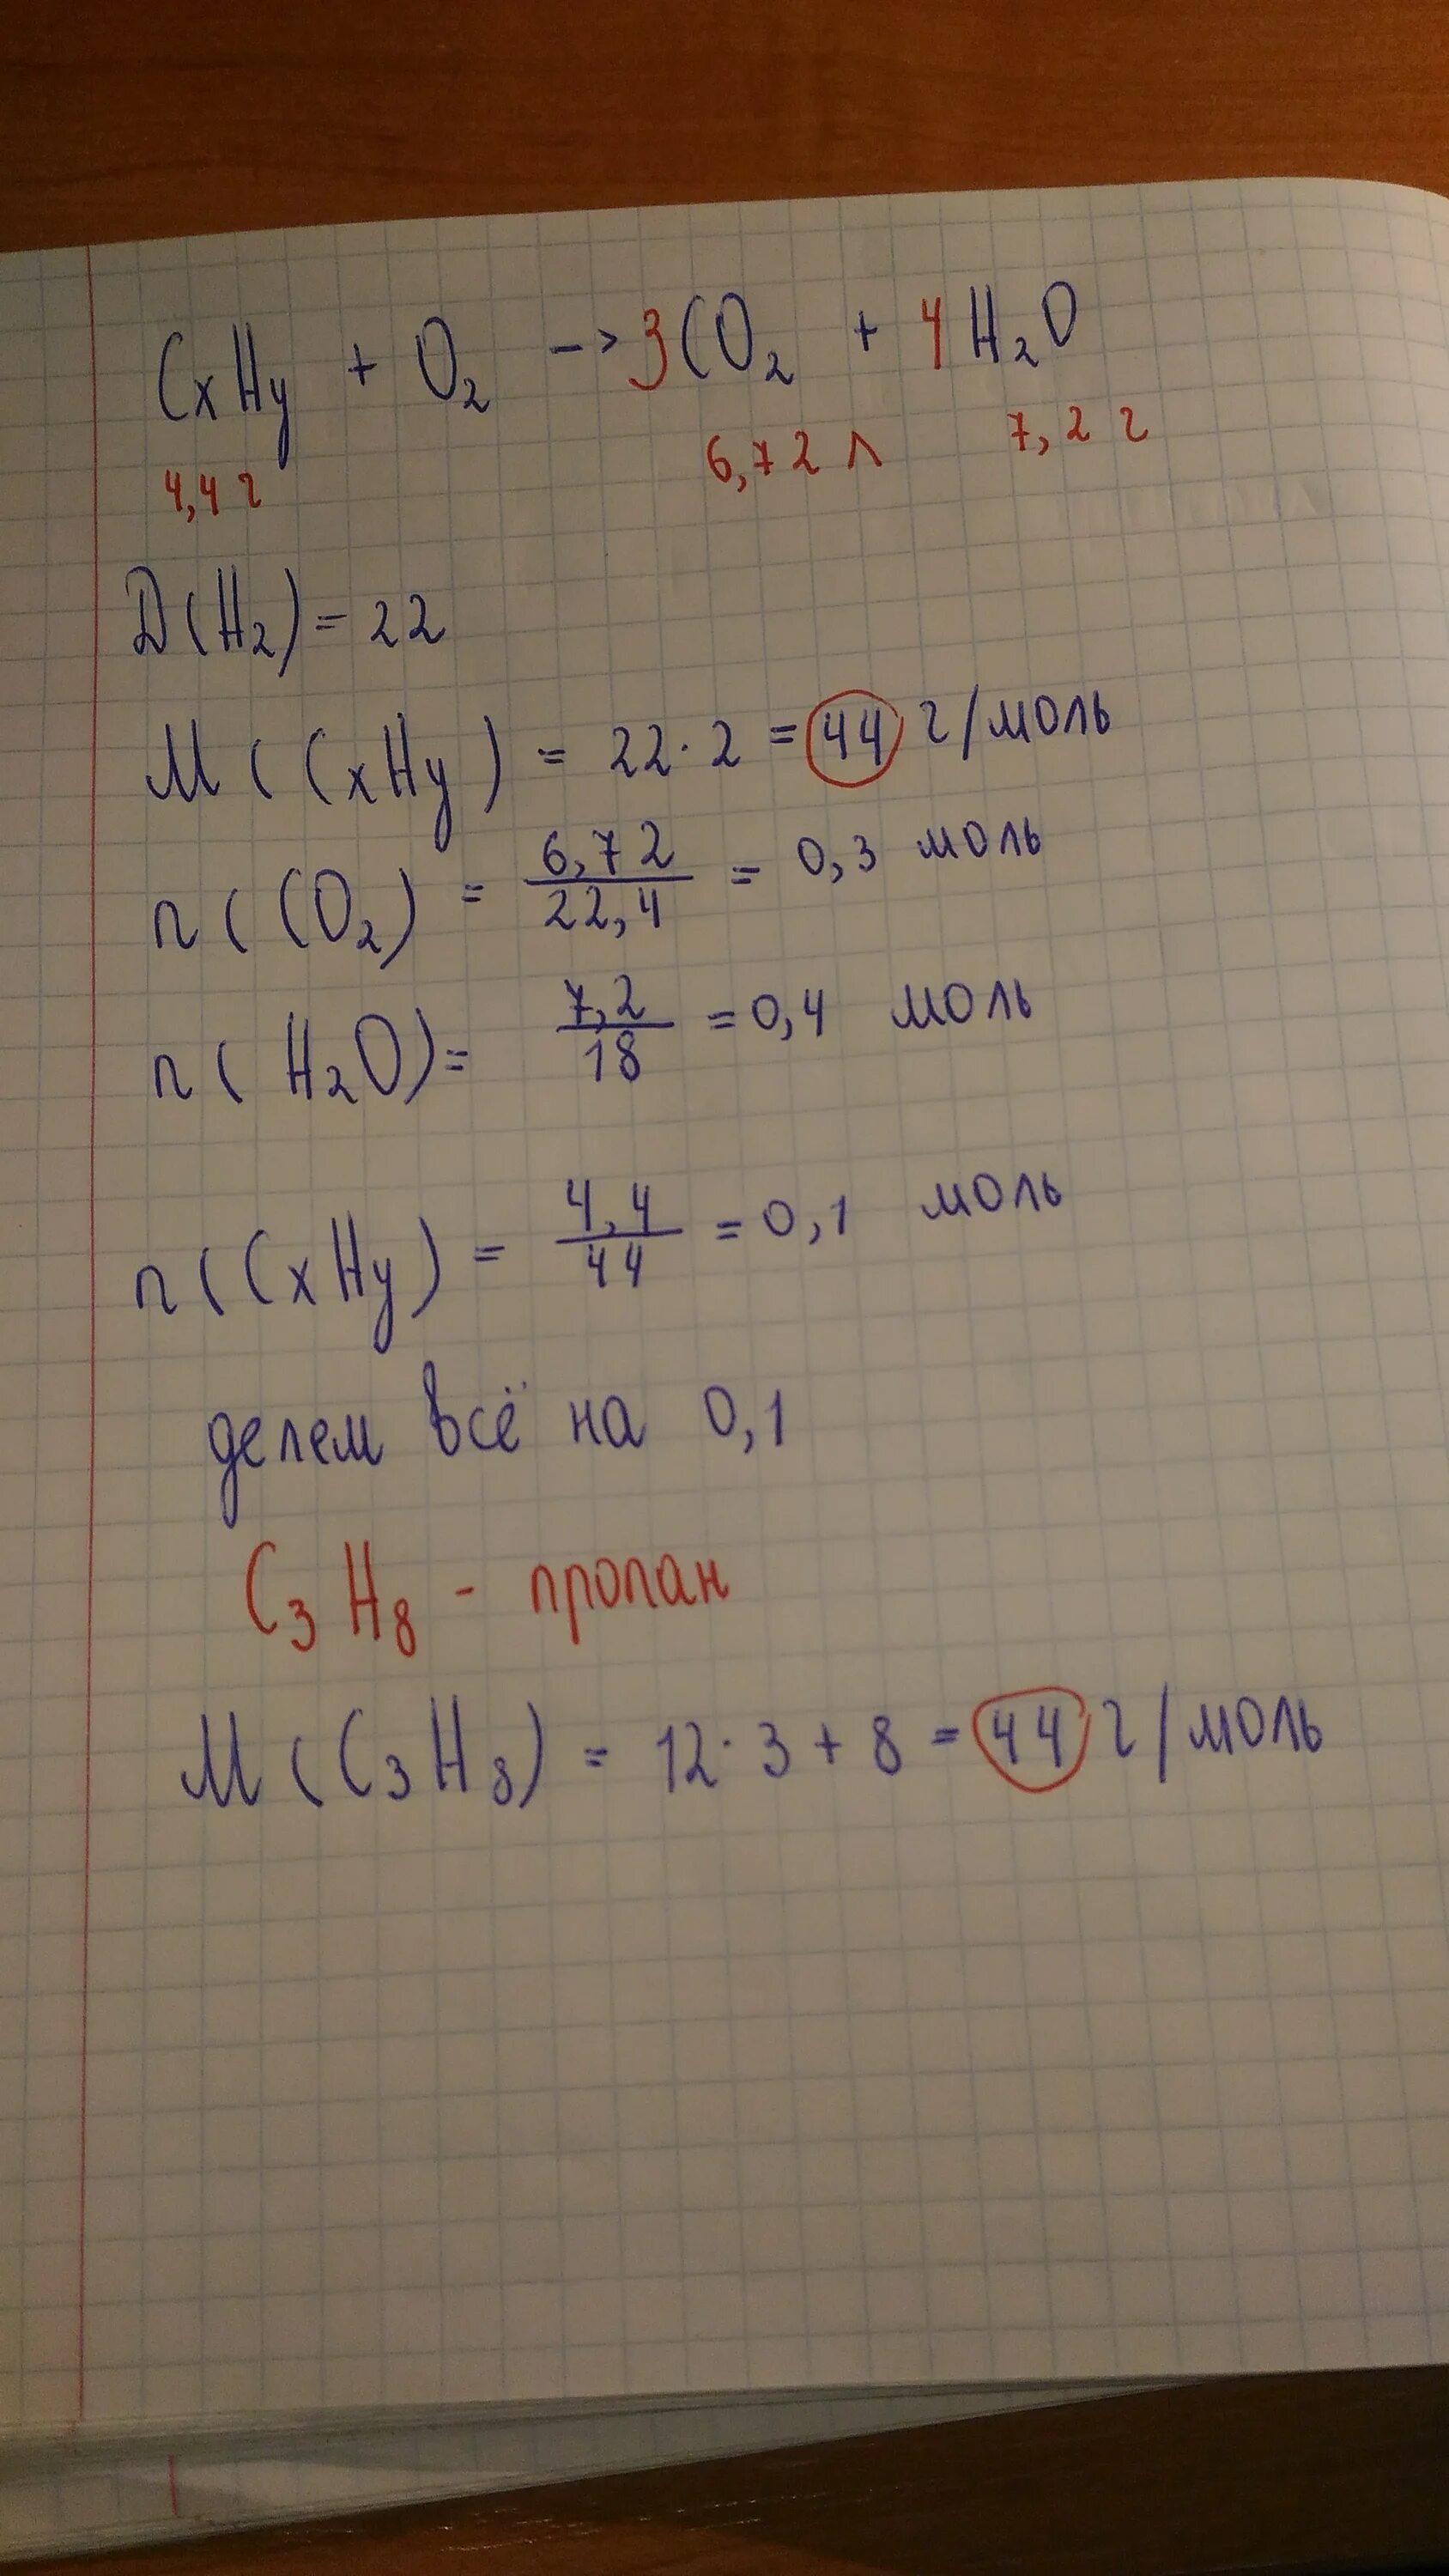 CxHy + O₂ -> 3CO₂ + 4H₂O
4,4 г 6,72 л 7,2 г
D(H₂) = 22
M(CxHy) = 22·2 = 44 г/моль
n(CO₂) = 6,72/22,4 = 0,3 моль
n(H₂O) = 7,2/18 = 0,4 моль
n(CxHy) = 4,4/44 = 0,1 моль
делем всё на 0,1
C₃H₈ - пропан
M(C₃H₈) = 12·3 + 8 = 44 г/моль